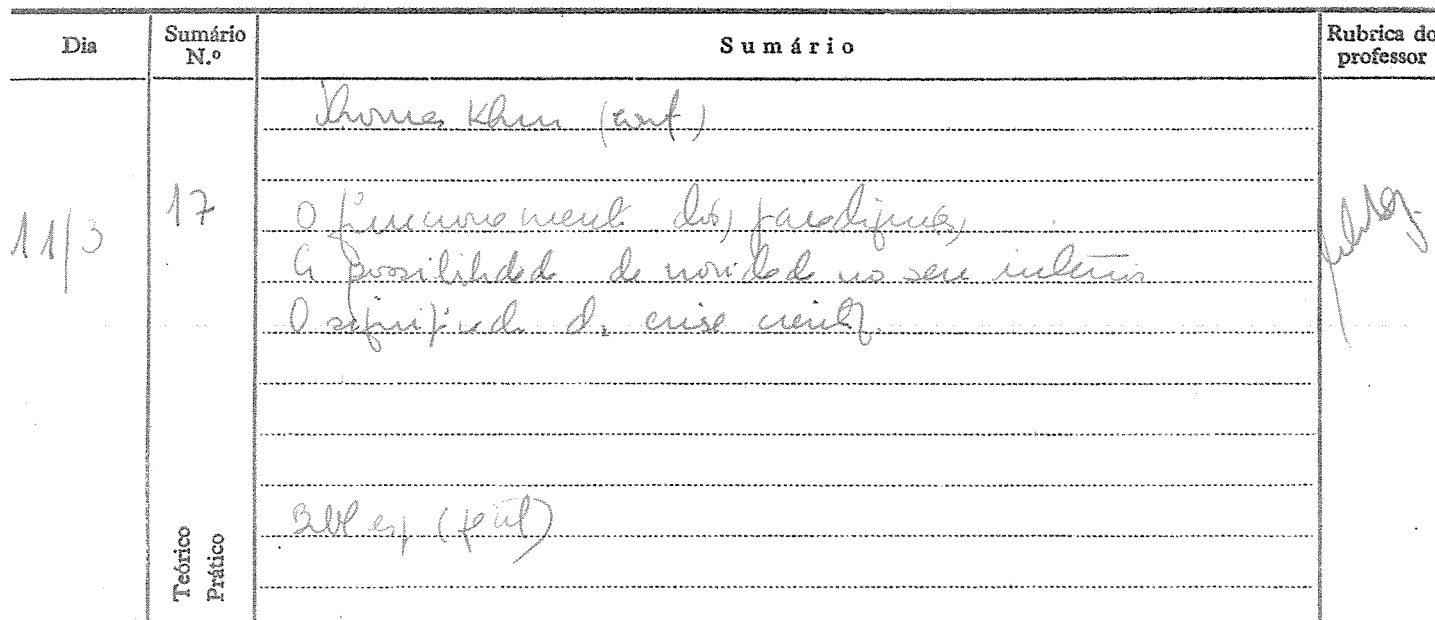 Dia Sumário N.º Sumário Rubrica do professor
Thomas Khun (cont)
11/3 17 O funcionament dos paradigmas,
A possibilidade de novidade no seu interior
O significado da crise cientf.
Bibl esp
Teórico
Prático